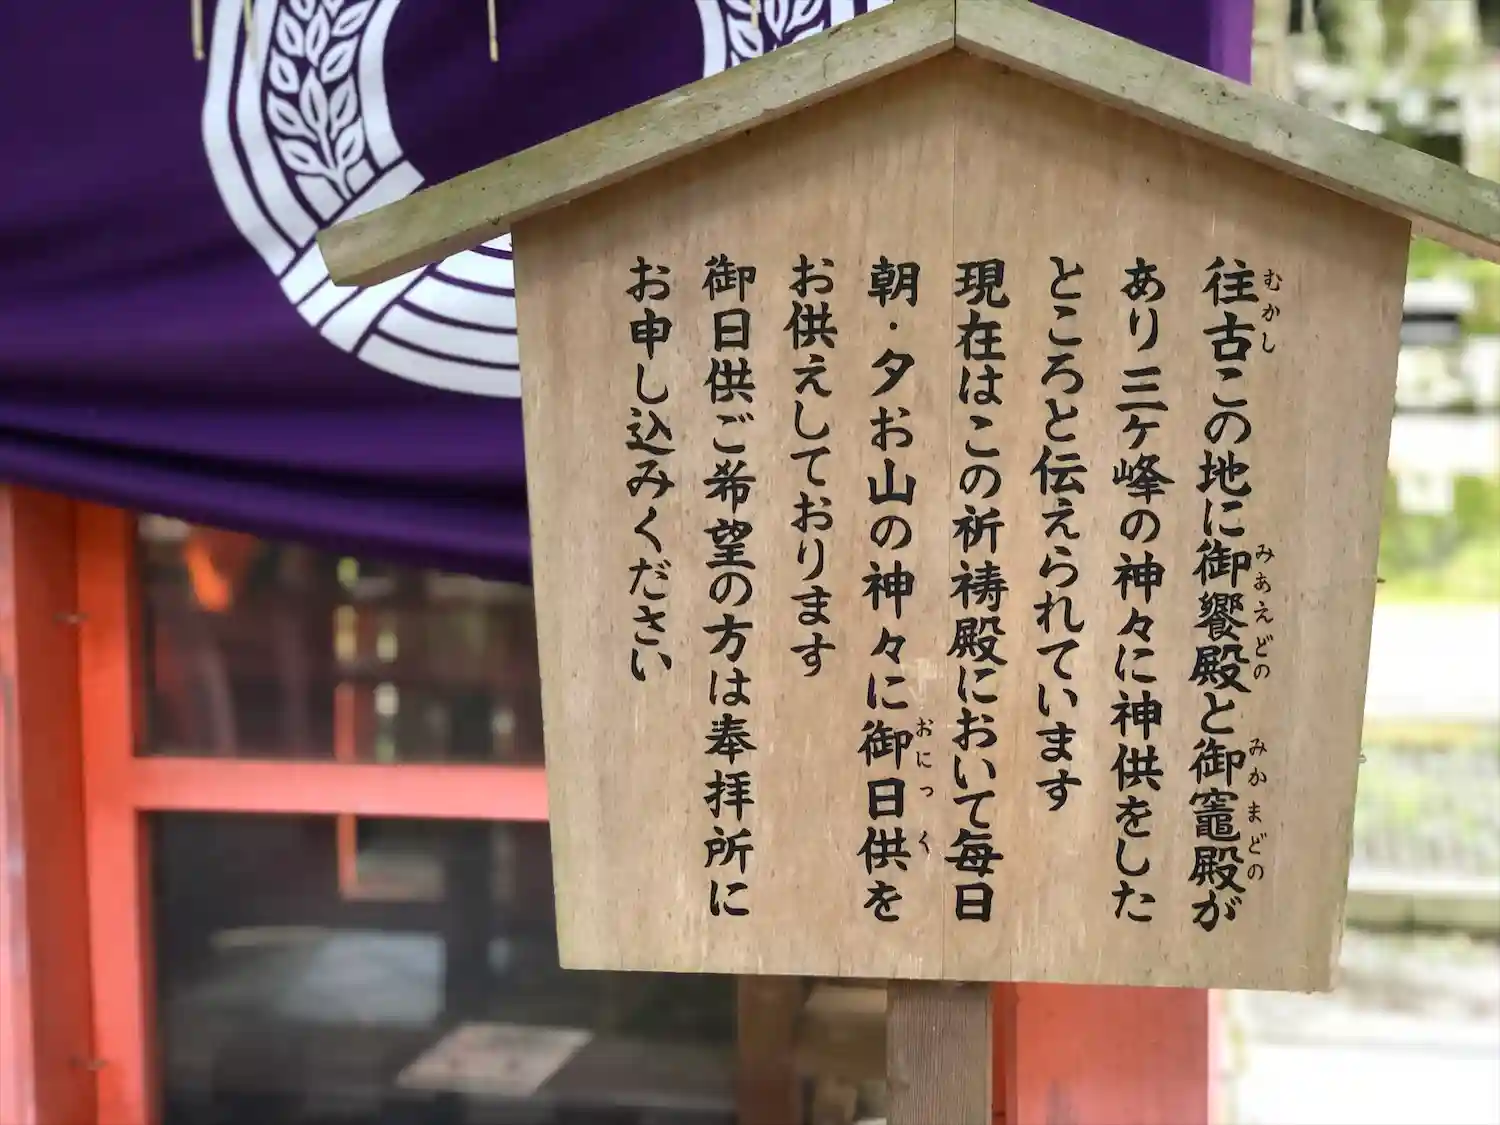 往古この地に御饗殿と御竈殿が
あり三ケ峰の神々に神供をした
ところと伝えられています
現在はこの祈祷殿において毎日
朝・夕お山の神々に御日供を
お供えしております
御日供ご希望の方は奉拝所に
お申し込みください
むかし
みあえどの
みかまどの
おにっく